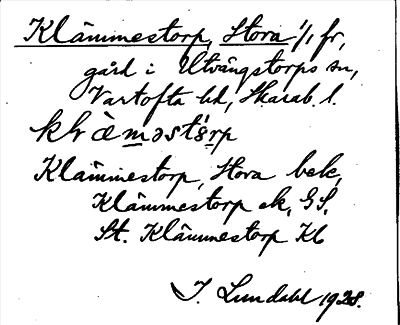 Klämmestorp, Stora 1/1 fr,
gård i Utvängstorps sn,
Vartofta hd, Skarab. l.
Klämmestorp, Stora bek,
Klämmestorp ek, GS,
St. Klämmestorp Kb
J. Lundahl 1928.